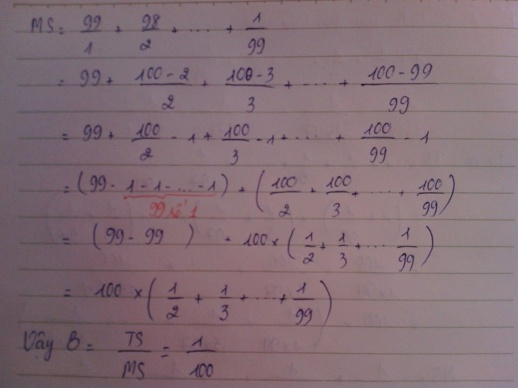 MS = 99/1 + 98/2 + ... + 1/99
= 99 + (100 - 2)/2 + (100 - 3)/3 + ... + (100 - 99)/99
= 99 + 100/2 - 1 + 100/3 - 1 + ... + 100/99 - 1
= (99 - 1 - 1 - ... - 1) + (100/2 + 100/3 + ... + 100/99)
99 số 1
= (99 - 99) + 100 × (1/2 + 1/3 + ... 1/99)
= 100 × (1/2 + 1/3 + ... + 1/99)
Vậy B = TS/MS = 1/100